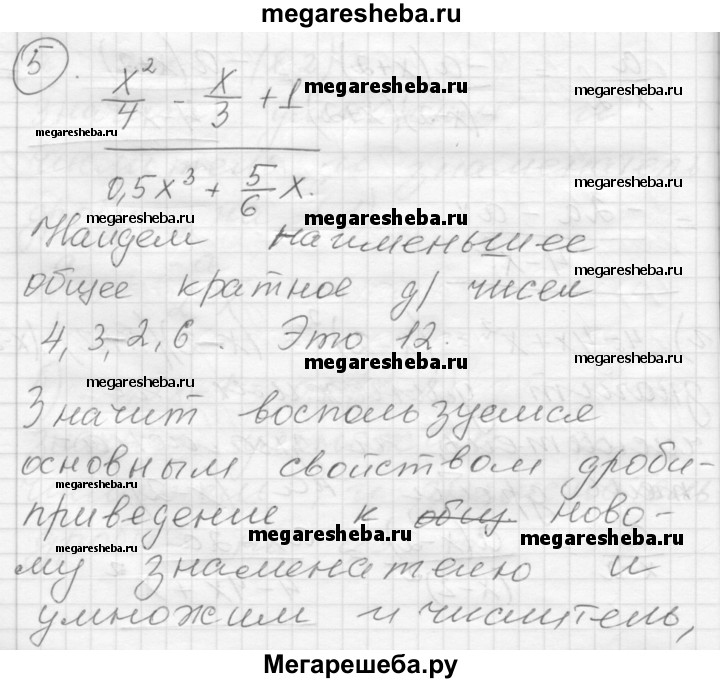 megaresheba.ru
5.
x²/4 - x/3 + 1
megaresheba.ru megaresheba.ru
0,5x³ + 5/6 x.
megaresheba.ru
megaresheba.ru megaresheba.ru
Найдем наименьшее
megaresheba.ru
общее кратное д/ чисел
4, 3, 2, 6 . Это 12.
megaresheba.ru megaresheba.ru
megaresheba.ru
Значит воспользуемся
основным свойством дроби-
megaresheba.ru
приведение к общ. ново-
megaresheba.ru megaresheba.ru
megaresheba.ru
му знаменателю и
умножим и числитель,
megaresheba.ru
Мегарешеба.ру